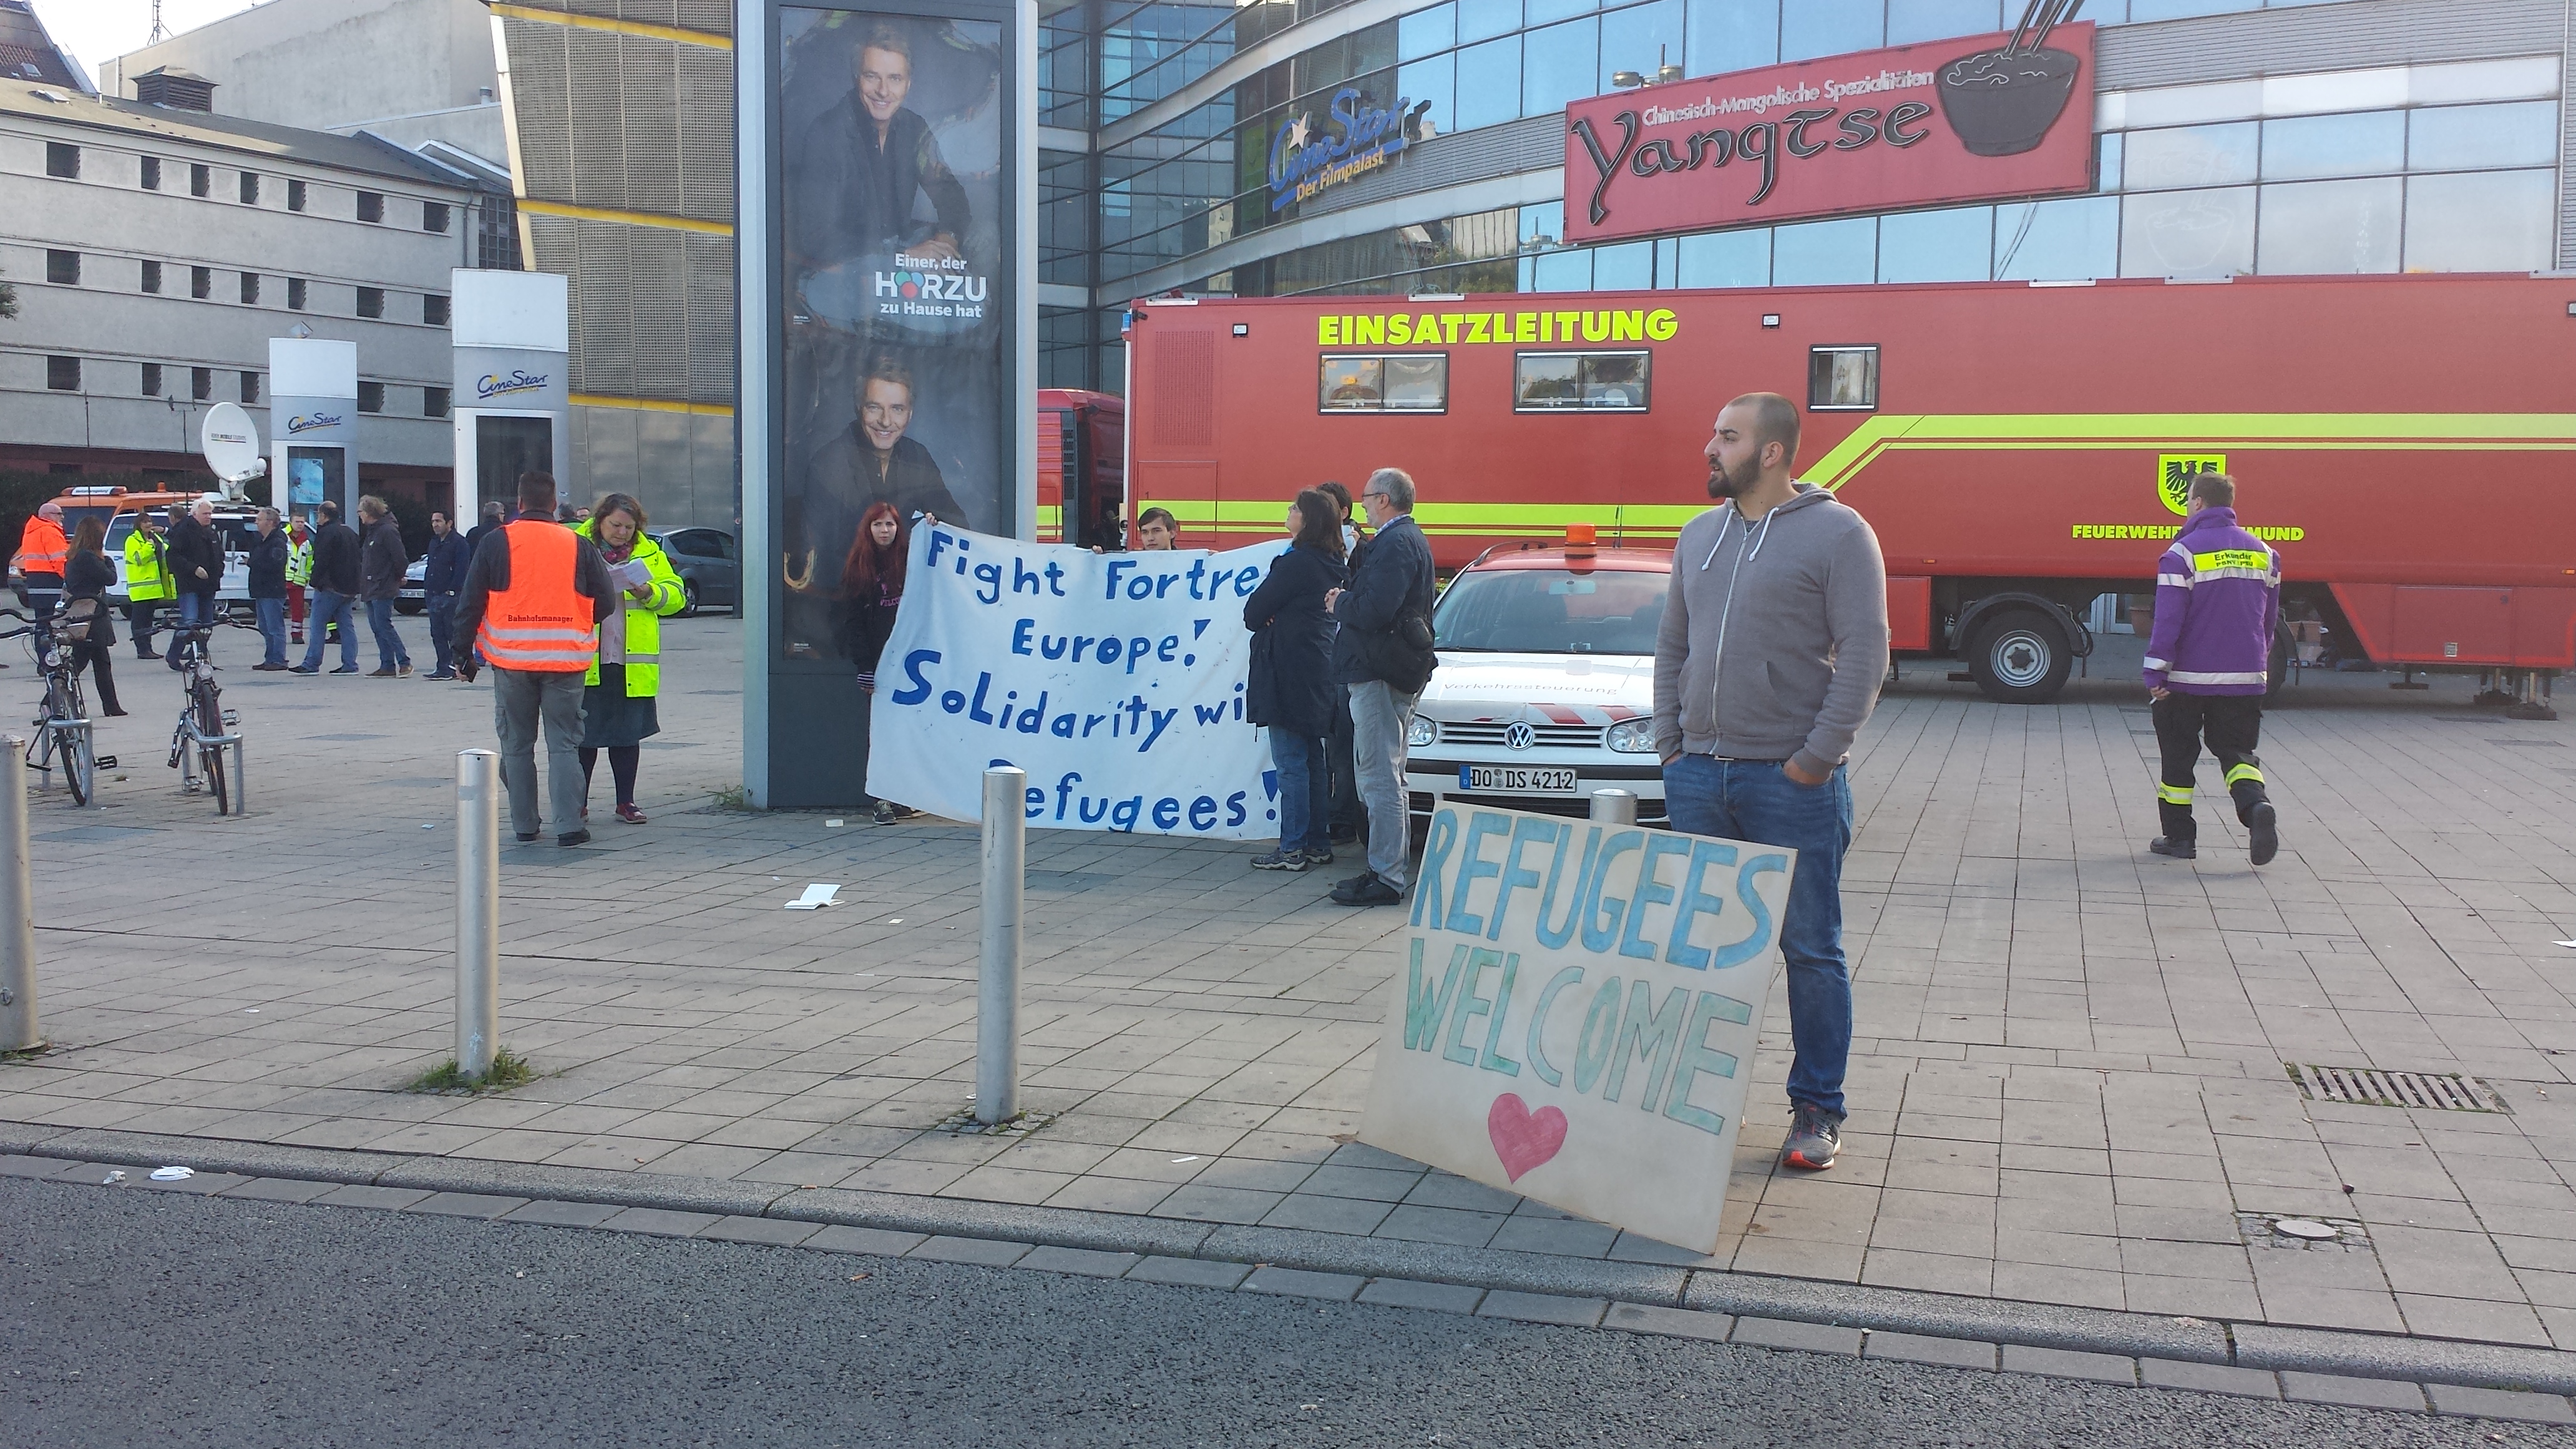 Chinesisch-Mongolische Spezialitäten
Yangtse
CineStar
Der Filmpalast
Einer, der
HÖRZU
zu Hause hat
EINSATZLEITUNG
CineStar
CineStar
FEUERWEHR MUND
Erkunder
Bahnhofsmanager
Fight Fortre
Europe!
Solidarity wi
Refugees!
Verkehrssteuerung
DO DS 4212
REFUGEES
WELCOME